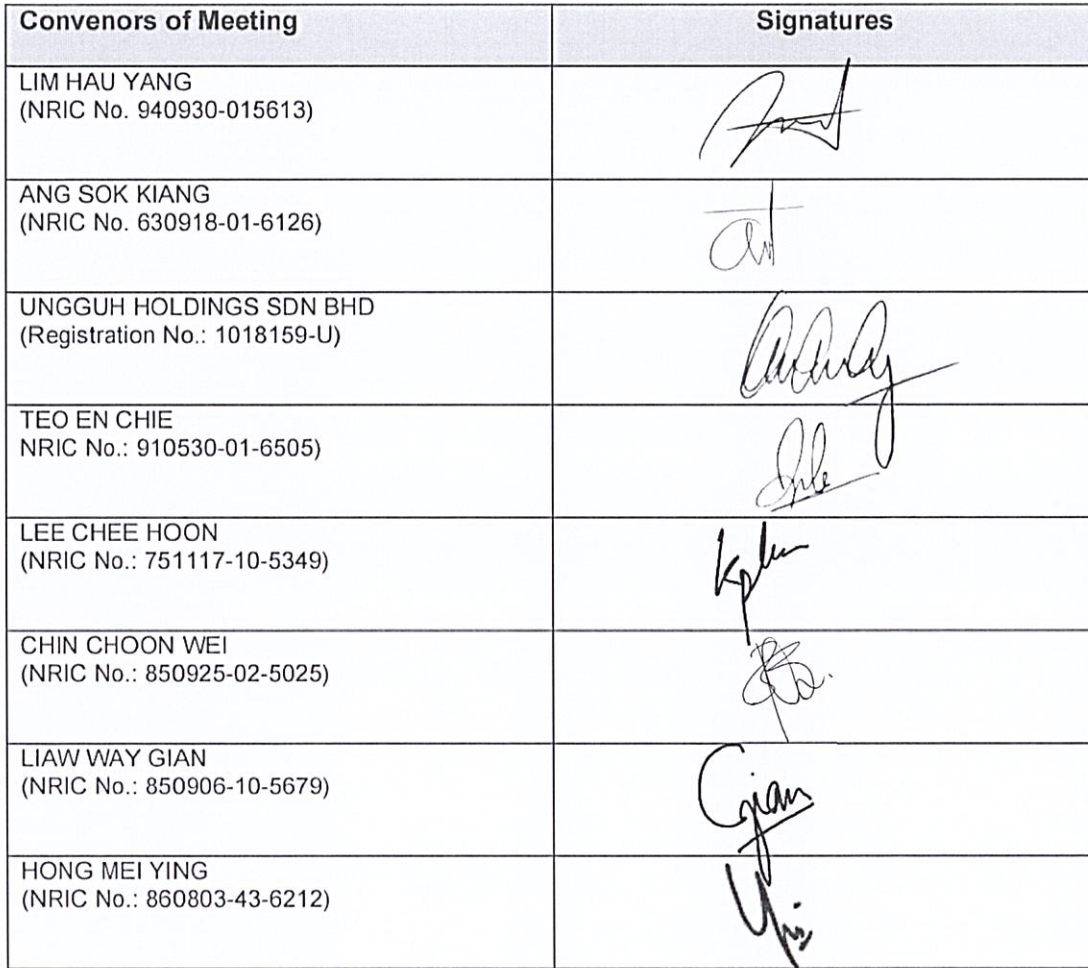 Convenors of Meeting
Signatures
LIM HAU YANG
(NRIC No. 940930-015613)
ANG SOK KIANG
(NRIC No. 630918-01-6126)
UNGGUH HOLDINGS SDN BHD
(Registration No.: 1018159-U)
TEO EN CHIE
NRIC No.: 910530-01-6505)
LEE CHEE HOON
(NRIC No.: 751117-10-5349)
CHIN CHOON WEI
(NRIC No.: 850925-02-5025)
LIAW WAY GIAN
(NRIC No.: 850906-10-5679)
Gian
HONG MEI YING
(NRIC No.: 860803-43-6212)